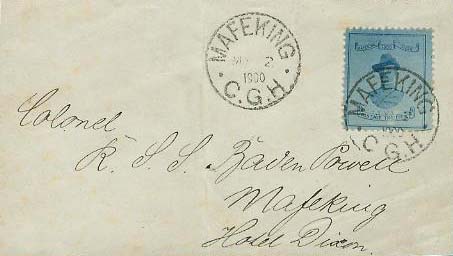 MAFEKING
2
1900
C.G.H.
MAFEKING
C.G.H.
Colonel
R. S. S. Baden Powell
Mafeking
Hotel Dixon.